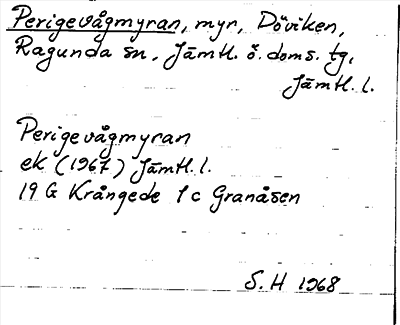 Perigevågmyran, myr, Döviken,
Ragunda sn, Jämtl. ö. doms. tg,
Jämtl. l.
Perigevågmyran
ek (1967) Jämtl. l.
19 G Krångede 1 c Granåsen
S. H 1968